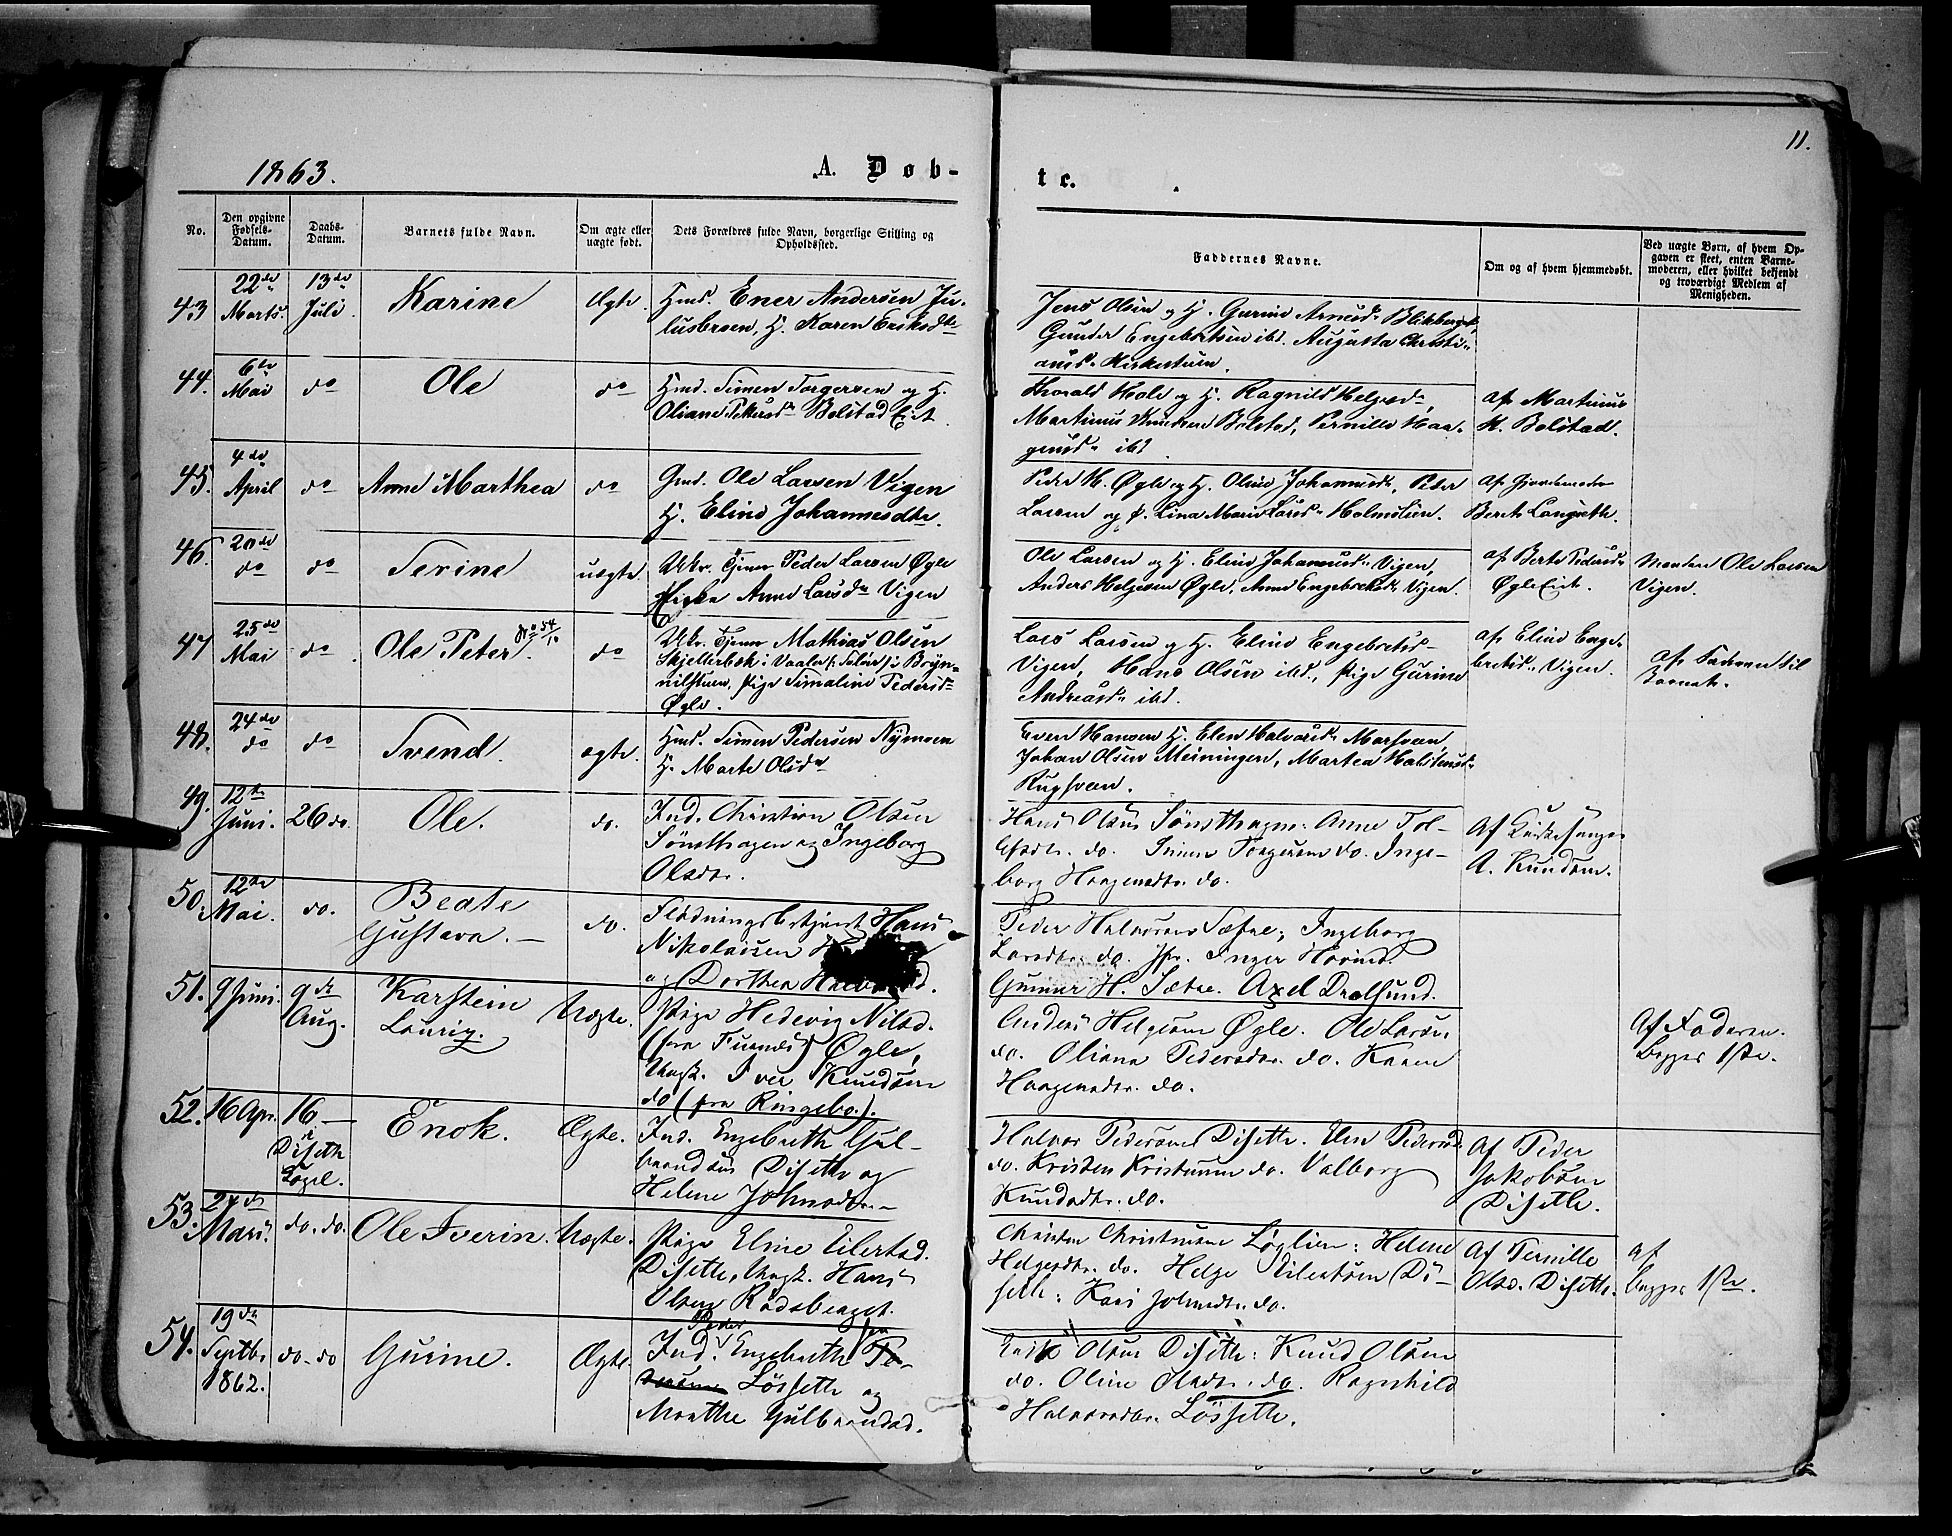 11.
1863.
A. Døb-
te.
No.
Den opgivne Fødsels-Datum.
Daabs-Datum.
Barnets fulde Navn.
Om ægte eller uægte født.
Dets Forældres fulde Navn, borgerlige Stilling og Opholdssted.
Faddernes Navne.
Om og af hvem hjemmedøbt.
Ved uægte Børn, af hvem Opgaven er skeet, enten Barnemoderen, eller hvilket bekjendt og troværdigt Medlem af Menigheden.
43
22de Marts.
13de Juli.
Karine
Ægte.
Hmd. Ener Andersen Ju-
lusbroen, H. Karen Eriksdtr
Jens Olsen og H. Gurine Arnesdr
Gunder Engebretsen ibd. Augusta Christi-
ansdr
44.
6te Mai
do
Ole
do
Hmd. Simen Torgersen og H.
Oliane Pedersdr Bolstad Eit.
Hole og H. Ragnild Helgesdr,
Martinus Knudsen Bolstad, Pernille Haa-
gensdr ibd
af Martinus
K. Bolstad.
45.
4de April
do
Anne Marthea
do
Gmd. Ole Larsen Vigen
H. Eline Johannesdtr.
Peder H. Øgle og H. Oline Johannesdr, Peder
Larsen og P. Lina Marie Larsdr Holmslien.
af Gjordemoder
Berit
46.
20de do
do
Serine
uægte.
Ukr. Tjener Peder Larsen Øgle
Pigen Anne Larsdr Vigen
Ole Larsen og H. Eline Johannesdr Vigen,
Anders Helgesen Øgle, Anne Engebretsdr Vigen.
af Berte Pedersdr
Øgle Eit.
Manden Ole Larsen
Vigen.
47
25de Mai
do
Ole Peter.
do
Ukr. Tjener Mathias Olsen
Skjellerbæk i Vaaler (i Solør)
Pige Simaline Pedersdr
Øgle.
Lars Larsen og H. Eline Engebretsdr
Vigen, Hans Olsen ibd., Pige Gurine
Andreasdr ibd.
af Eline Enge-
bretsdr Vigen.
af Faderen til
Barnet.
48.
24de do
do
Svend.
ægte.
Hmd. Simen Pedersen Nymoen
H. Marte Olsdr
Even Hansen H. Elen Halvorsdr
Johan Olsen Meiningen, Martea
49.
12te Juni.
26 do.
Ole.
do.
Ind. Christian Olsen
Sønsthagen og Ingeborg
Olsdtr.
Hans Olsen Sønsthagen: Anne Tol-
lefsdtr. do. Simen Torgersen do. Inge-
borg Haagensdtr. do.
Af Kirkesanger
A. Knudsen.
50.
12te Mai.
do.
Beate
Gustava. —
do.
Flødningsbetjent Hans
Nikolaisen
og Dorthea
Peder Halvorsen Sætre; Ingeborg
Larsdtr. do. Jfr. Inger Hovind.
Gunner H. Sætre. Axel Drølsund.
51.
9 Juni.
9de Aug.
Karstein
Lauritz.
Uægte.
Pige Hedevig Nilsd.
(fra Furnæs) Øgle,
Ungk. Iver Knudsen
do (fra Ringebo).
Anders Helgesen Øgle. Ole Larsen
do. Oliana Pedersdtr. do. Karen
Haagensdtr. do.
Af Faderen.
begges 1ste.
52.
16 Apr.
16 —
i
Disetli
Capel.
Enok.
Ægte.
Ind. Engebreth Gul-
brandsen Disetli og
Helene Johnsdtr.-
Halvor Pedersen Disetli. Elen Pedersd.
do. Kristen Kristensen do. Valborg
Knudsdtr. do.
Af Peder
Jakobsen
Disetli.
53.
27de Mars.
do. do.
Ole Iverin.
Uægte.
Pige Eline Eilertsd.
Disetli, Ungk. Hans
Olsen Rødsberget.
Christen Christensen Løslien: Helene
Helgesdtr. do. Helge Eilertsen Di-
setli: Kari Johnsdtr. do.
Af Pernille
Olsd. Disetli.
af
begges 1ste.
54.
19de Septbr. 1862.
do. do
Gurine.
Ægte.
Peder
Ind. Engebreth Pe-
Løssetli og
Marthe Gulbrandsd.
Erik Olsen Disetli: Knud Olsen
do. Oline Olsdtr. do. Ragnhild
Halvorsdtr. Løssetli.